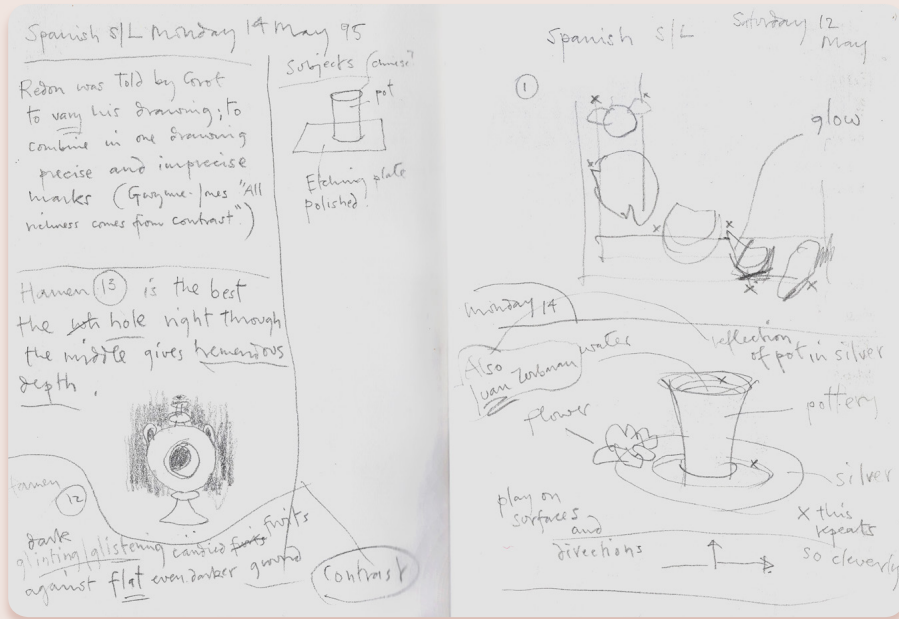 Spanish S/L Monday 14 May 95
Redon was told by Corot
to vary his drawing; to
combine in one drawing
precise and imprecise
marks (Gwynne-Jones "All
richness comes from contrast")
Hamen 13 is the best
the hole right through
the middle gives tremendous
depth.
Hamen
12
dark
glinting/glistening candied fruits fruits
against flat even darker ground
Contrast
Subjects
pot
Etching plate
polished.
Spanish S/L Saturday 12
May
1
glow
Monday 14
Also
Juan Zurbaran
water
reflection
of pot in silver
flower
pottery
silver
play on
surfaces
and
directions
x this
repeats
so cleverly